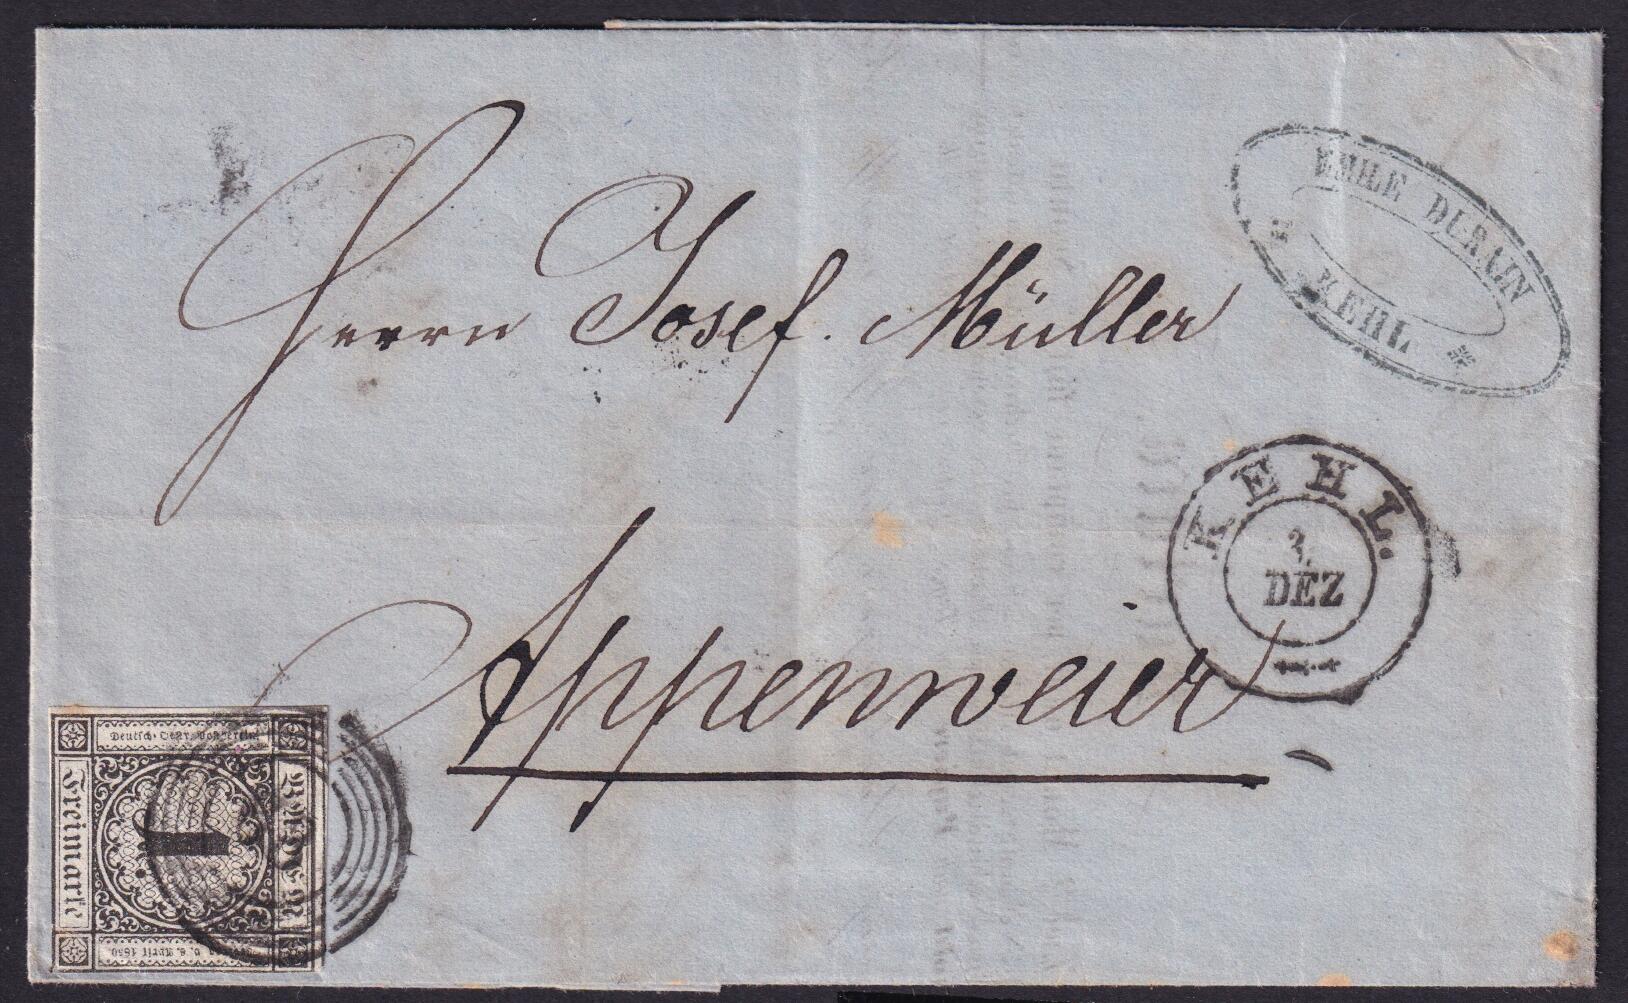 EMILE DURAIN
KEHL
Herrn Josef Müller
KEHL.
DEZ
Appenweier
Deutsch-Oestr. Postverein
Freimarke
1
Baden
v. 6. April 1850